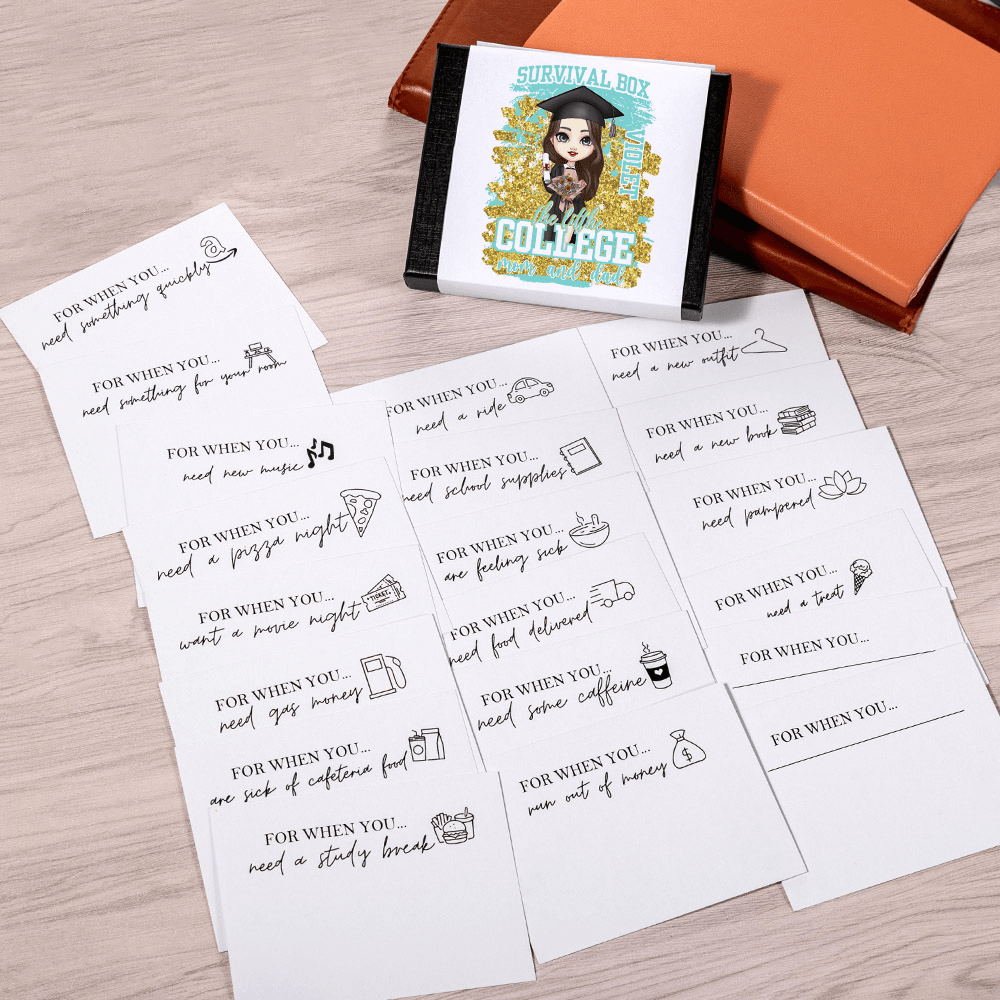 SURVIVAL BOX
VIOLET
the little
COLLEGE
mom and dad
a
FOR WHEN YOU...
need something quickly
FOR WHEN YOU...
need something for your room
FOR WHEN YOU...
need new music
FOR WHEN YOU...
need a pizza night
FOR WHEN YOU...
want a movie night
TICKET
FOR WHEN YOU...
need gas money
FOR WHEN YOU...
are sick of cafeteria food
FOR WHEN YOU...
need a study break
FOR WHEN YOU...
need a ride
FOR WHEN YOU...
need school supplies
FOR WHEN YOU...
are feeling sick
FOR WHEN YOU...
need food delivered
FOR WHEN YOU...
need some caffeine
FOR WHEN YOU...
run out of money
$
FOR WHEN YOU...
need a new outfit
FOR WHEN YOU...
need a new book
FOR WHEN YOU...
need pampered
FOR WHEN YOU...
need a treat
FOR WHEN YOU...
FOR WHEN YOU...